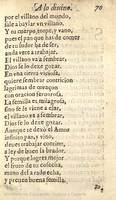 A lo diuino. 70
por el villano del mundo,
sale a baylar vn villano.
Y tu cuerpo, torpe, y vano,
pues el pan que has de comer
de tu sudor ha de ser,
anda vete a trabajar.
El villano va a sembrar,
Dios se lo dexe gozar.
En una tierra vazia,
quiere sembrar contricion
lagrimas de coraçon
con oracion
La semilla es milagrosa,
sino se la ofende el villano,
El villano va a sembrar,
Dios se lo dexe gozar.
Aunque te dexò el Amor
infinito pan, y vino,
deues trabajar contino,
a ley de buen labrador.
Y porque logres mejor
el fruto de su cosecha,
mano del arado echa,
y preuen buena semilla.